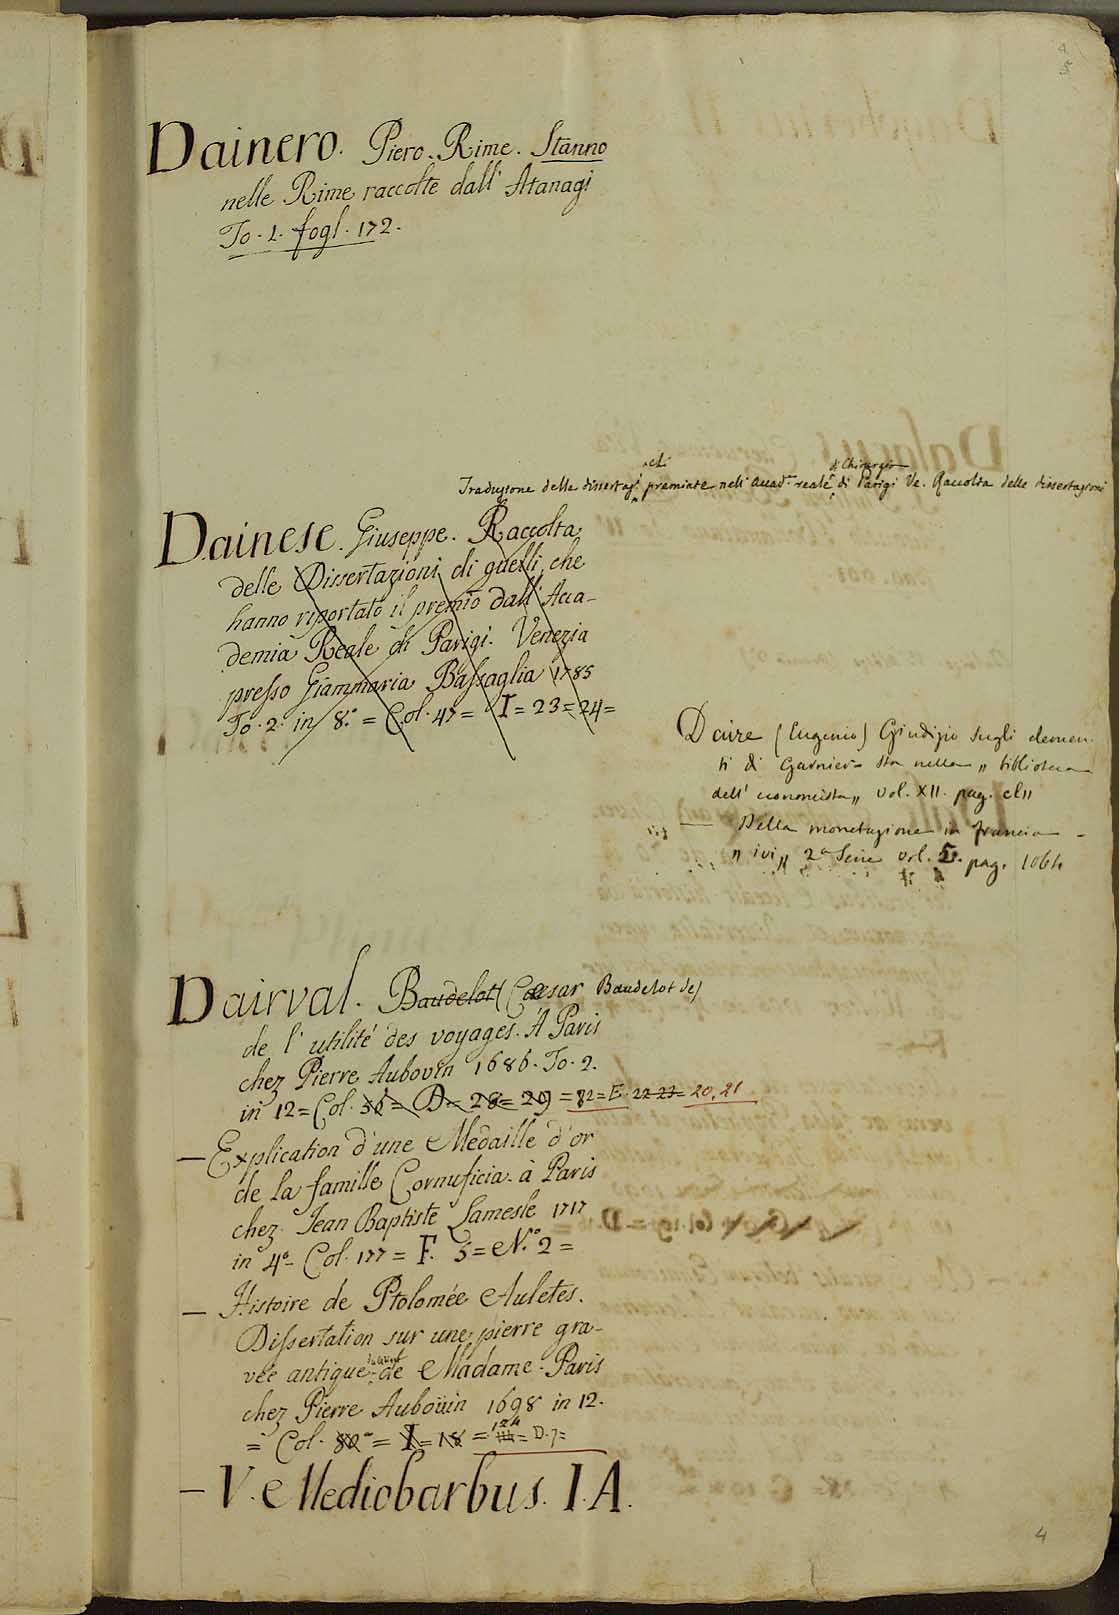 4
5
Dainero. Piero. Rime. Stanno
nelle Rime raccolte dall' Atanagi
To. 1. fogl. 172.
chi di Chirurgia
Traduzione delle dissertaz.i premiate nell' Accad.a reale di Parigi Ve. Raccolta delle dissertazioni
Dainese. Giuseppe. Raccolta
delle Dissertazioni di quelli che
hanno riportato il premio dall' Acca-
demia Reale di Parigi. Venezia
presso Giammaria Bassaglia 1785
To. 2. in 8.° = Col. 47 = I = 23 = 24 =
Daire (Eugenio) Giudizio sugli elemen-
ti di Garnier - sta nella „ biblioteca
dell' economista „ vol. XII. pag. cl
— Della monetazione in francia -
„ ivi „ 2a Serie vol. 5. pag. 1064
Dairval. Baudelot (Cæsar Baudelot de)
de l' utilité des voyages. A Paris
chez Pierre Aubouin 1686. To. 2.
in 12 = Col. = D = 28 = 29 = 82 = E. 22 23 = 20, 21
— Explication d'une Medaille d'or
de la famille Cornuficia. à Paris
chez Jean Baptiste Lamesle 1717
in 4° - Col. 177 = F. 5 = N.° 2 =
— Histoire de Ptolomée Auletes.
Dissertation sur une pierre gra-
vée antique de Madame. Paris
chez Pierre Aubouin 1698 in 12.
= Col. 80 = I = 18 = 124 = D. 7 =
— V. Mediobarbus. I. A.
4